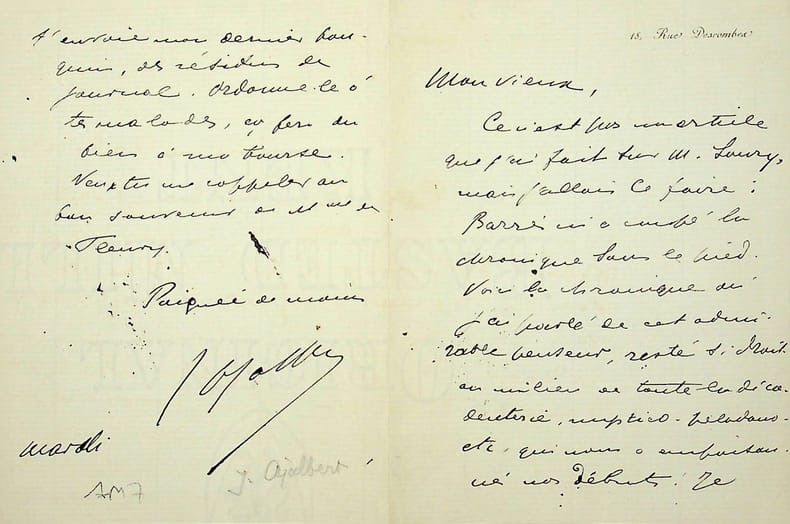 18, Rue Descombes
Mon vieux,
Ce n'est pas un article
que j'ai fait sur M. Soury,
mais j'allais le faire :
Barrès m'a coupé la
chronique sous le pied.
Voici la chronique où
j'ai parlé de cet admi-
rable penseur, resté si droit
au milieu de toute la déca-
denterie, mystico-péladano-
etc, qui nous a empoison-
né nos débuts ! Je
t'envoie mon dernier bou-
quin, des résidus de
journal. Ordonne-le à
tes malades, ça fera du
bien à ma bourse.
Veux-tu me rappeler au
bon souvenir de Mme de
Fleury.
Poignée de mains
J Ajalbert
mardi
AM7
J. Ajalbert